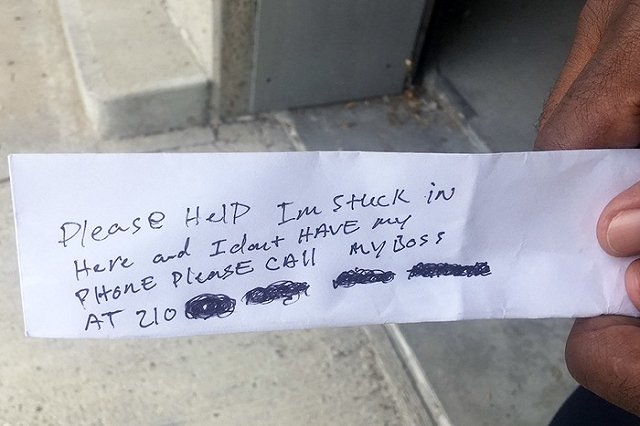 Please Help Im stuck in
Here and I dont HAVE my
PHONE Please CAll My Boss
AT 210